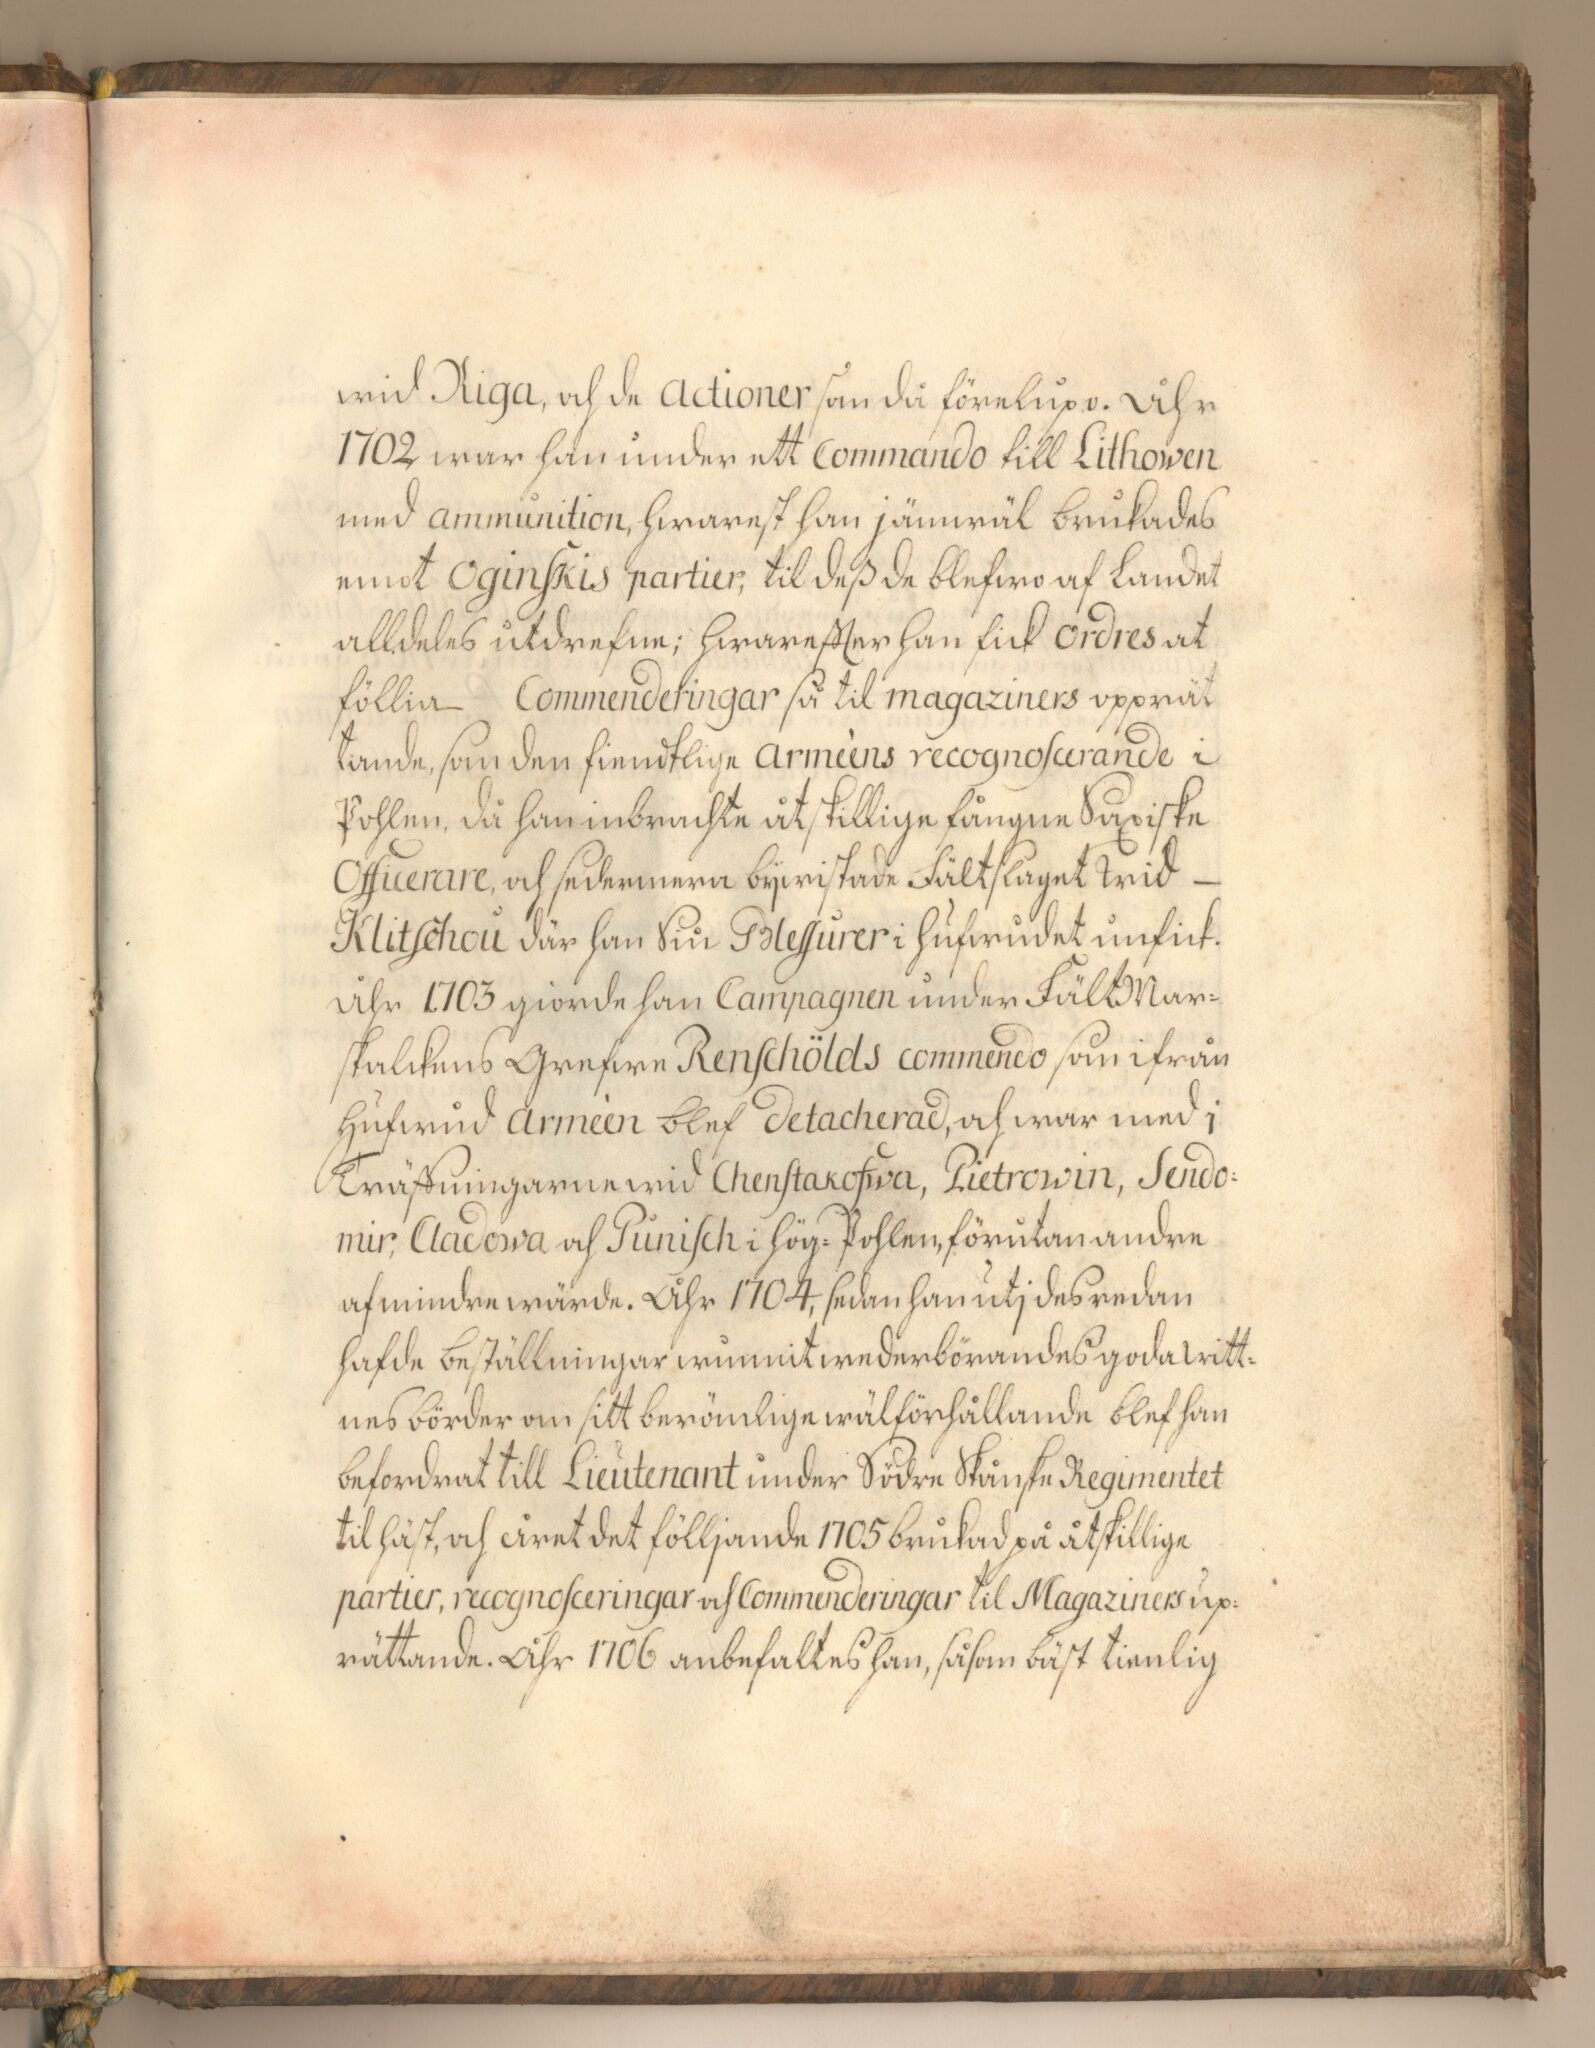 wid Riga, och de Actioner som då förelupo. Åhr
1702 war han under ett Commando till Lithowen
med ammunition, hwarest han jämwäl brukades
emot Oginskis partier, til deß de blefwo af Landet
alldeles utdrefne; hwarefter han fick Ordres at
föllia Commenderingar så til magaziners opprät
tande, som den fiendtlige Armeens recognoscerande i
Pohlen, då han inbrachte åtskillige fångne Saxiske
Officerare, och sedermera bijwistade Fältslaget wid —
Klitschou där han Siu Blessurer i hufwudet undfick.
Åhr 1703 giorde han Campagnen under Fält Mar=
skalckens Grefwe Renschölds commendo som ifrån
Hufwud Armeen blef detacherad, och war med i
Träffningarne wid Chenstakofwa, Pietrowin, Sendo=
mir, Cladowa och Punisch i Hög= Pohlen, förutan andre
af mindre wärde. Åhr 1704, sedan han utj des redan
hafde beställningar wunnit wederbörandes goda witt=
nesbörder om sitt berömlige wälförhållande blef han
befordrat till Lieutenant under Södre Skånske Regimentet
til häst, och året det földjande 1705 brukad på åtskillige
partier, recognosceringar och Commenderingar til Magaziners up=
rättande. Åhr 1706 anbefaltes han, såsom bäst tienlig